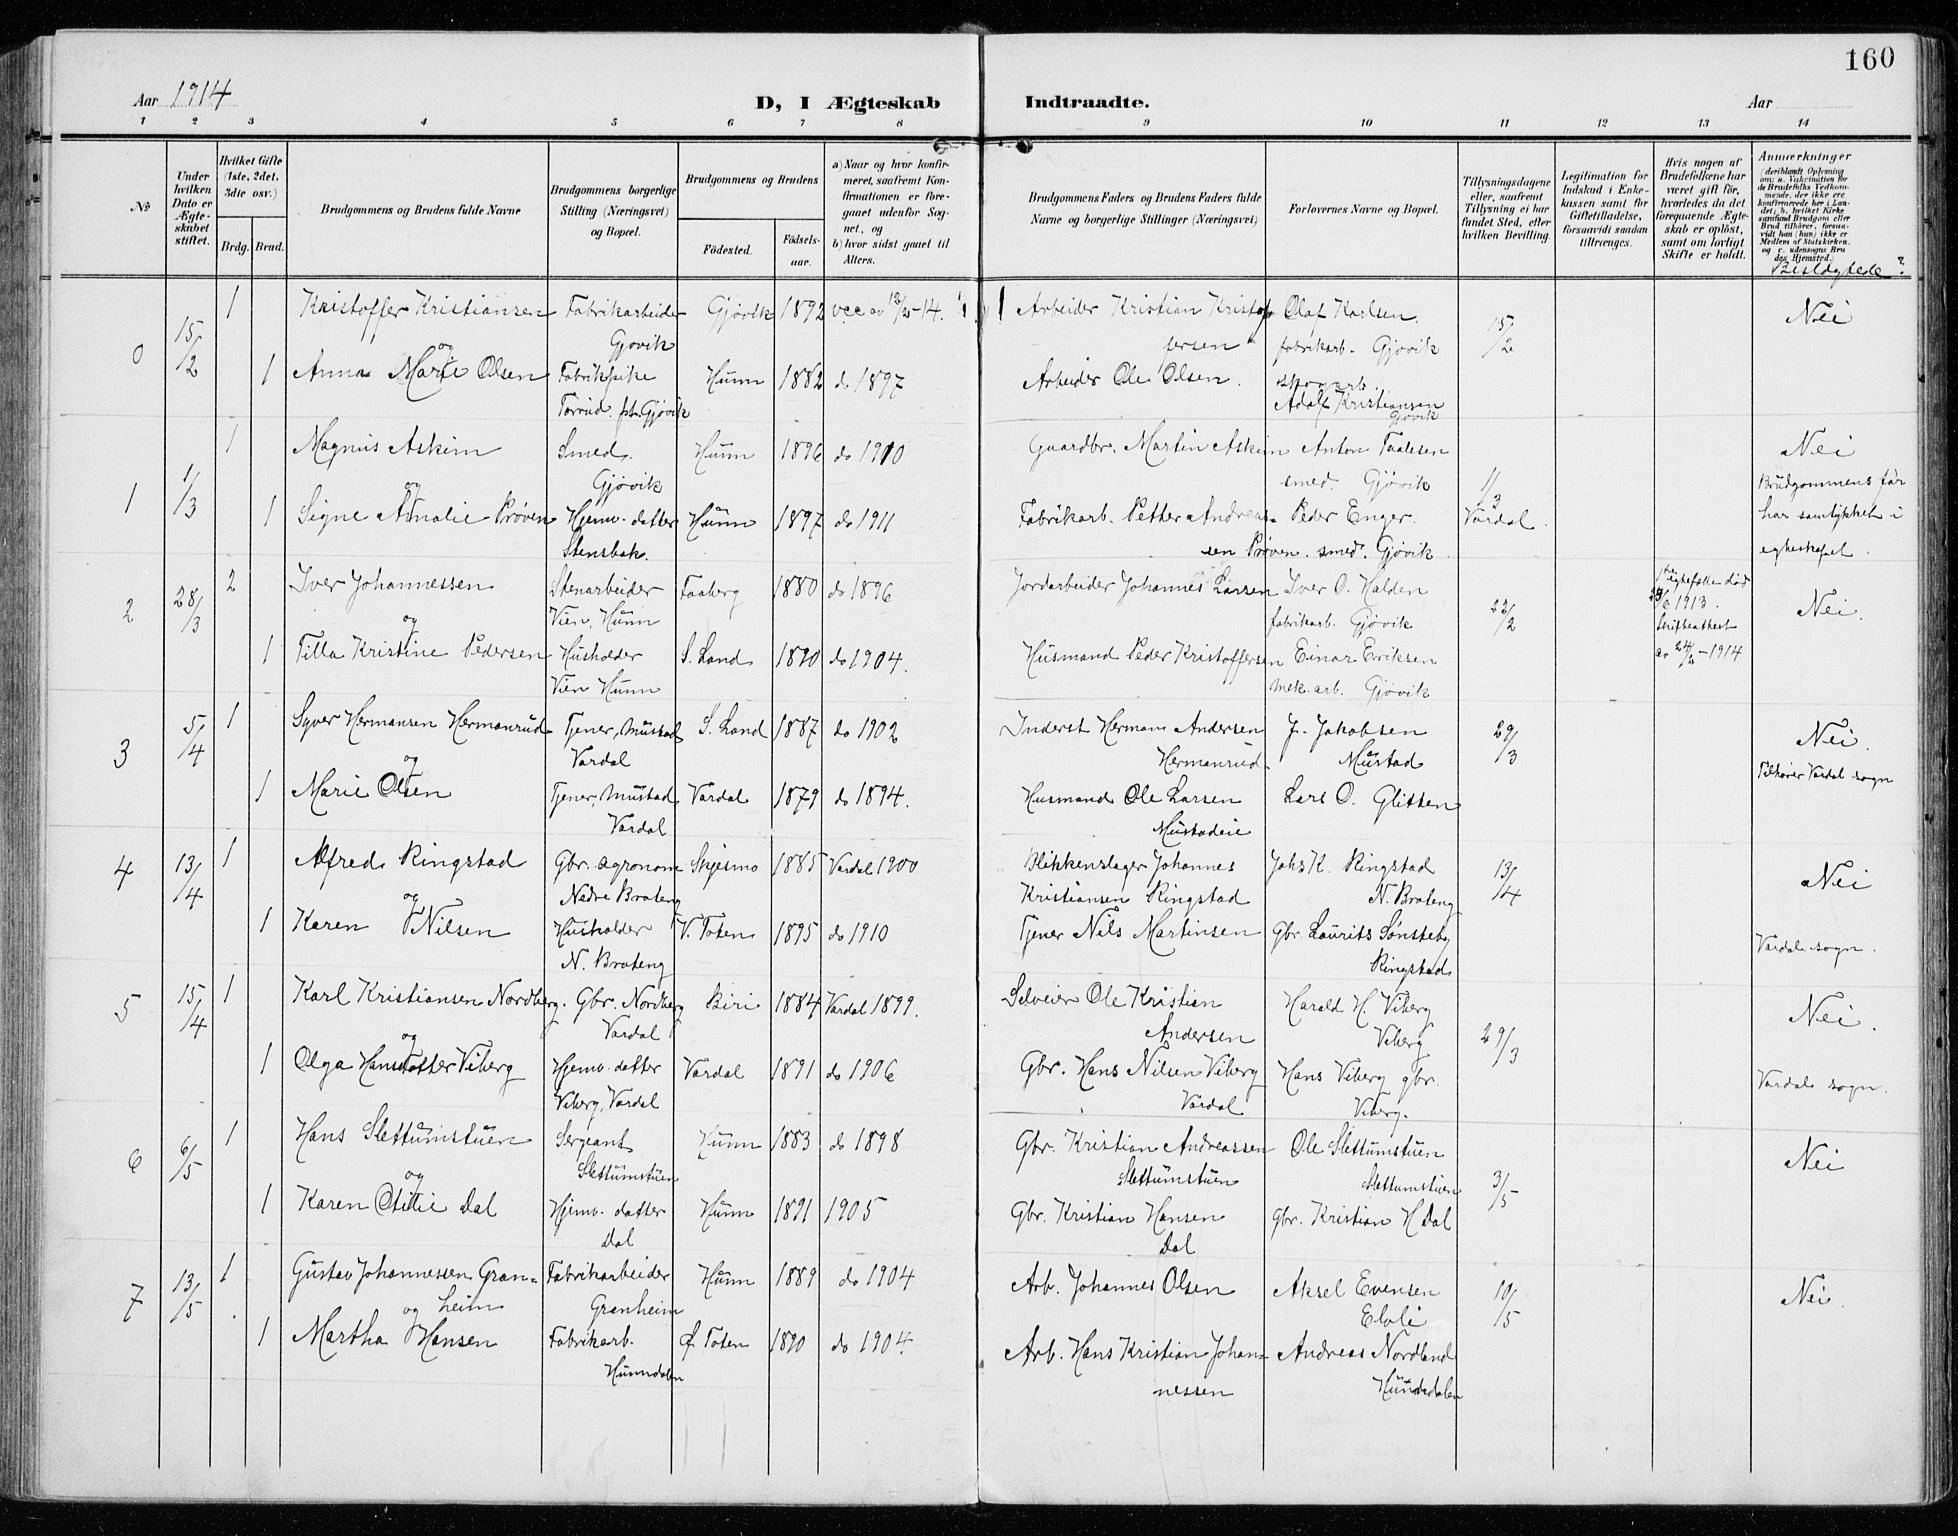 160
Aar 1914
D, I Ægteskab Indtraadte.
Aar
1 2 3 4 5 6 7 8 9 10 11 12 13 14
No
Under hvilken Dato er Ægteskabet stiftet.
Hvilket Gifte (1ste, 2det, 3die osv.)
Brdg. Brud.
Brudgommens og Brudens fulde Navne
Brudgommens borgerlige Stilling (Næringsvei) og Bopæl.
Brudgommens og Brudens
Födested. Födselsaar.
a) Naar og hvor konfirmeret, saafremt Konfirmationen er foregaaet udenfor Sognet, og
b) hvor sidst gaaet til Alters.
Brudgommens Faders og Brudens Faders fulde Navne og borgerlige Stillinger (Næringsvei)
Forlovernes Navne og Bopæl.
Tillysningsdagene eller, saafremt Tillysning ei har fundet Sted, efter hvilken Bevilling.
Legitimation for Indskud i Enkekassen samt for Giftetilladelse, forsaavidt saadan tiltrænges.
Hvis nogen af Brudefolkene har været gift för, hvorledes da det foregaaende Ægteskab er oplöst, samt om lovligt Skifte er holdt.
Anmærkninger (deriblandt Oplysning om: a. Vakcination for de Brudefolks Vedkommende, der ikke ere konfirmerede her i Landet; b. hvilket Kirkesamfund Brudgom eller Brud tilhører, forsaavidt han (hun) ikke er Medlem af Statskirken, og c. udensogns Brudes Hjemsted.)
Beslægtede?
0 15/2 1 Kristoffer Kristiansen Fabrikarbeider Gjøvik 1892 vcc av 12/2-14. Arbeider Kristian Kristof Olaf Karlsen. 15/2 Nei
og Gjøvik fersen fabrikarb. Gjøvik
1 Anna Marie Olsen Fabrikpike Hunn 1882 do 1897 Arbeider Ole Olsen. skogarb.
Torrud. pr. Gjøvik Adolf Kristiansen
Gjøvik
1 1/3 1 Magnus Askim Smed. Hunn 1896 do 1910 Gaardbr. Martin Askim Anton Taalesen 1/3 Nei
og Gjøvik smed. Gjøvik Brudgommens far
1 Signe Amalie Prøven Hjemv. datter Hunn 1897 do 1911 Fabrikarb. Petter Andreas- Peder Enger. Vardal. har samtykket i
Stensbak. sen Prøven. smed. Gjøvik egteskapet.
2 28/3 2 Iver Johannessen Stenarbeider Faaberg 1880 do 1896 Jordarbeider Johannes Larsen Iver O. Halden 22/2 1ste egtefælle død Nei.
og Vien, Hunn fabrikarb. Gjøvik 1913. Skifteattest
1 Tilla Kristine Pedersen Husholder S. Land 1890 do 1904. Husmand Peder Kristoffersen Einar Eriksen av 24/2-1914
Vien Hunn mek. arb. Gjøvik
3 5/4 1 Syver Hermansen Hermanrud Tjener, Mustad S. Land 1887 do 1902 Inderst Herman Andersen J. Jakobsen 29/3 Nei.
og Vardal Hermanrud. Mustad
1 Marie Olsen Tjener, Mustad Vardal 1879 do 1894. Husmand Ole Larsen Lars O. Glitten Tilhører Vardal sogn
Vardal Mustadeie
4 13/4 1 Alfred Ringstad Gbr. agronom Skjesmo 1885 Vardal 1900 Blikkenslager Johannes Johs K. Ringstad 13/4 Nei
og Nedre Brateng Kristiansen Ringstad N. Brateng
1 Karen Nilsen Husholder V. Toten 1895 do 1910 Tjener Nils Martinsen Gbr. Laurits Sønsteby Vardal sogn.
N. Brateng Ringstad
5 15/4 1 Karl Kristiansen Nordberg. Gbr. Nordberg Biri 1884 Vardal 1899. Selveier Ole Kristian Harald H. Viberg 29/3 Nei.
og Vardal Andersen Viberg
1 Olga Hansdatter Viberg Hjemv. datter Vardal 1891 do 1906 Gbr. Hans Nilsen Viberg Hans Viberg gbr. Vardal sogn.
Viberg, Vardal Vardal Viberg.
6 6/5 1 Hans Slettumstuen Sergeant Hunn 1883 do 1898 Gbr. Kristian Andreassen Ole Slettumstuen 3/5 Nei
og Slettumstuen Slettumstuen Slettumstuen
1 Karen Otilie Dal Hjemv. datter Hunn 1891 1905 Gbr. Kristian Hansen gbr. Kristian H Dal
Dal Dal
7 13/5 1 Gustav Johannessen Gran= Fabrikarbeider Hunn 1889 do 1904 Arb. Johannes Olsen Aksel Evensen 10/5 Nei.
og heim Granheim
1 Martha Hansen Fabrikarb. Ø. Toten 1890 do 1904. Arb. Hans Kristian Johan- Andreas Nordland
Hunndalen nessen Hunndalen